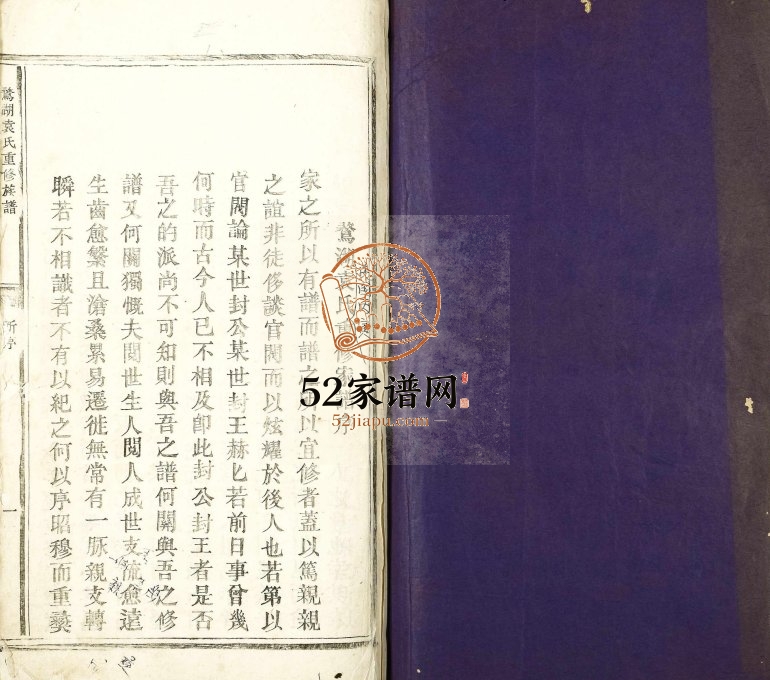 鵞湖袁氏重修家譜序
家之所以有譜而譜之所以宜修者蓋以篤親親
之誼非徒侈談官閥而以炫耀於後人也若第以
官閥論某世封公某世封王赫匕若前日事曾幾
何時而古今人已不相及卽此封公封王者是否
吾之的派尚不可知則與吾之譜何關與吾之修
譜又何關獨慨夫閱世生人閱人成世支流愈遠
生齒愈繁且滄桑累易遷徙無常有一脈親支轉
瞬若不相識者不有以紀之何以序昭穆而重彝
鵞湖袁氏重修族譜
序
一
52家谱网
52jiapu.com